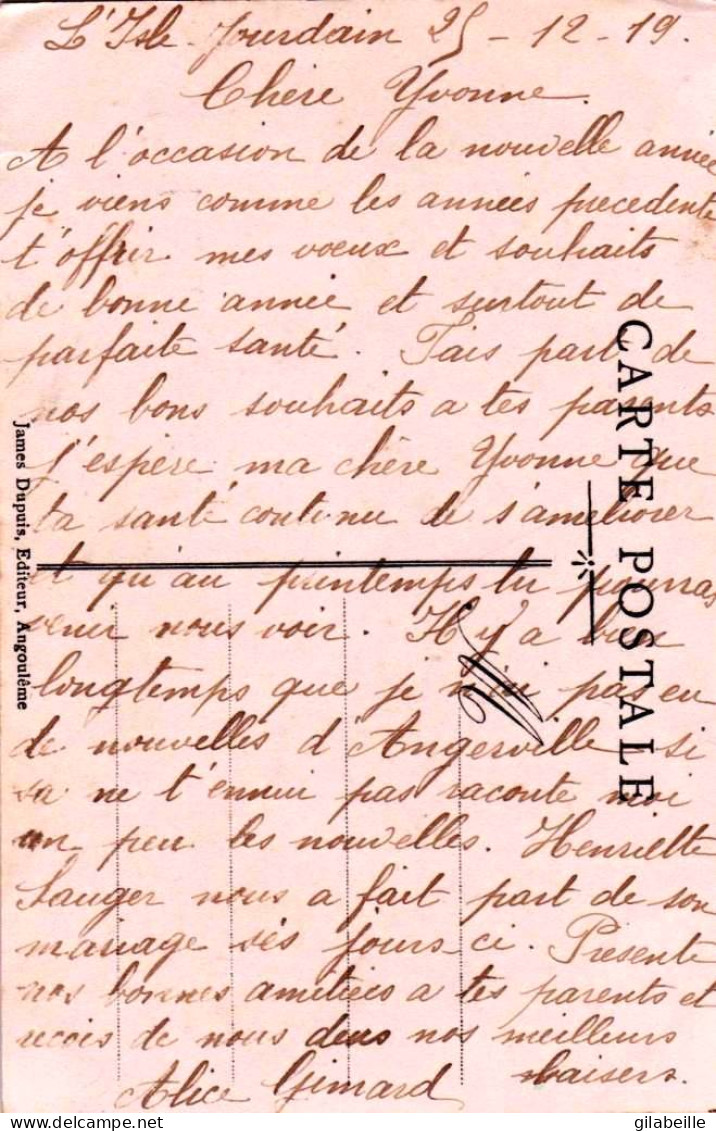 L'Isle Jourdain 25-12-19.
Chère Yvonne.
A l'occasion de la nouvelle année
je viens comme les années precedente
t'offrir mes voeux et souhaits
de bonne année et surtout de
parfaite santé. Fais part de
nos bons souhaits a tes parents
j'espère ma chère Yvonne que
ta santé continue de s'améliorer
et qu'au printemps tu pourras
venir nous voir. Il y a bien
longtemps que je n'ai pas eu
de nouvelles d'Angerville si
sa ne t'ennui pas raconte moi
un peu les nouvelles. Henriette
Sauger nous a fait part de son
mariage sés jours-ci. Présente
nos bonnes amitiées a tes parents et
reçois de nous deux nos meilleurs
baisers.
Alice Gimard
CARTE POSTALE
James Dupuis, Editeur, Angoulême
delcampe.net
gilabeille